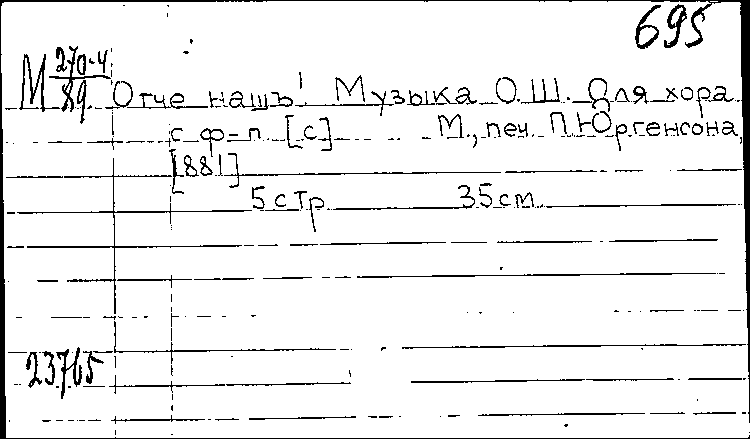 695
М 270-4/89 Отче нашъ! Музыка О.Ш. Для хора
с ф-п. [С] М., печ. П.Юргенсона,
[881]
5 стр 35 см.
23765